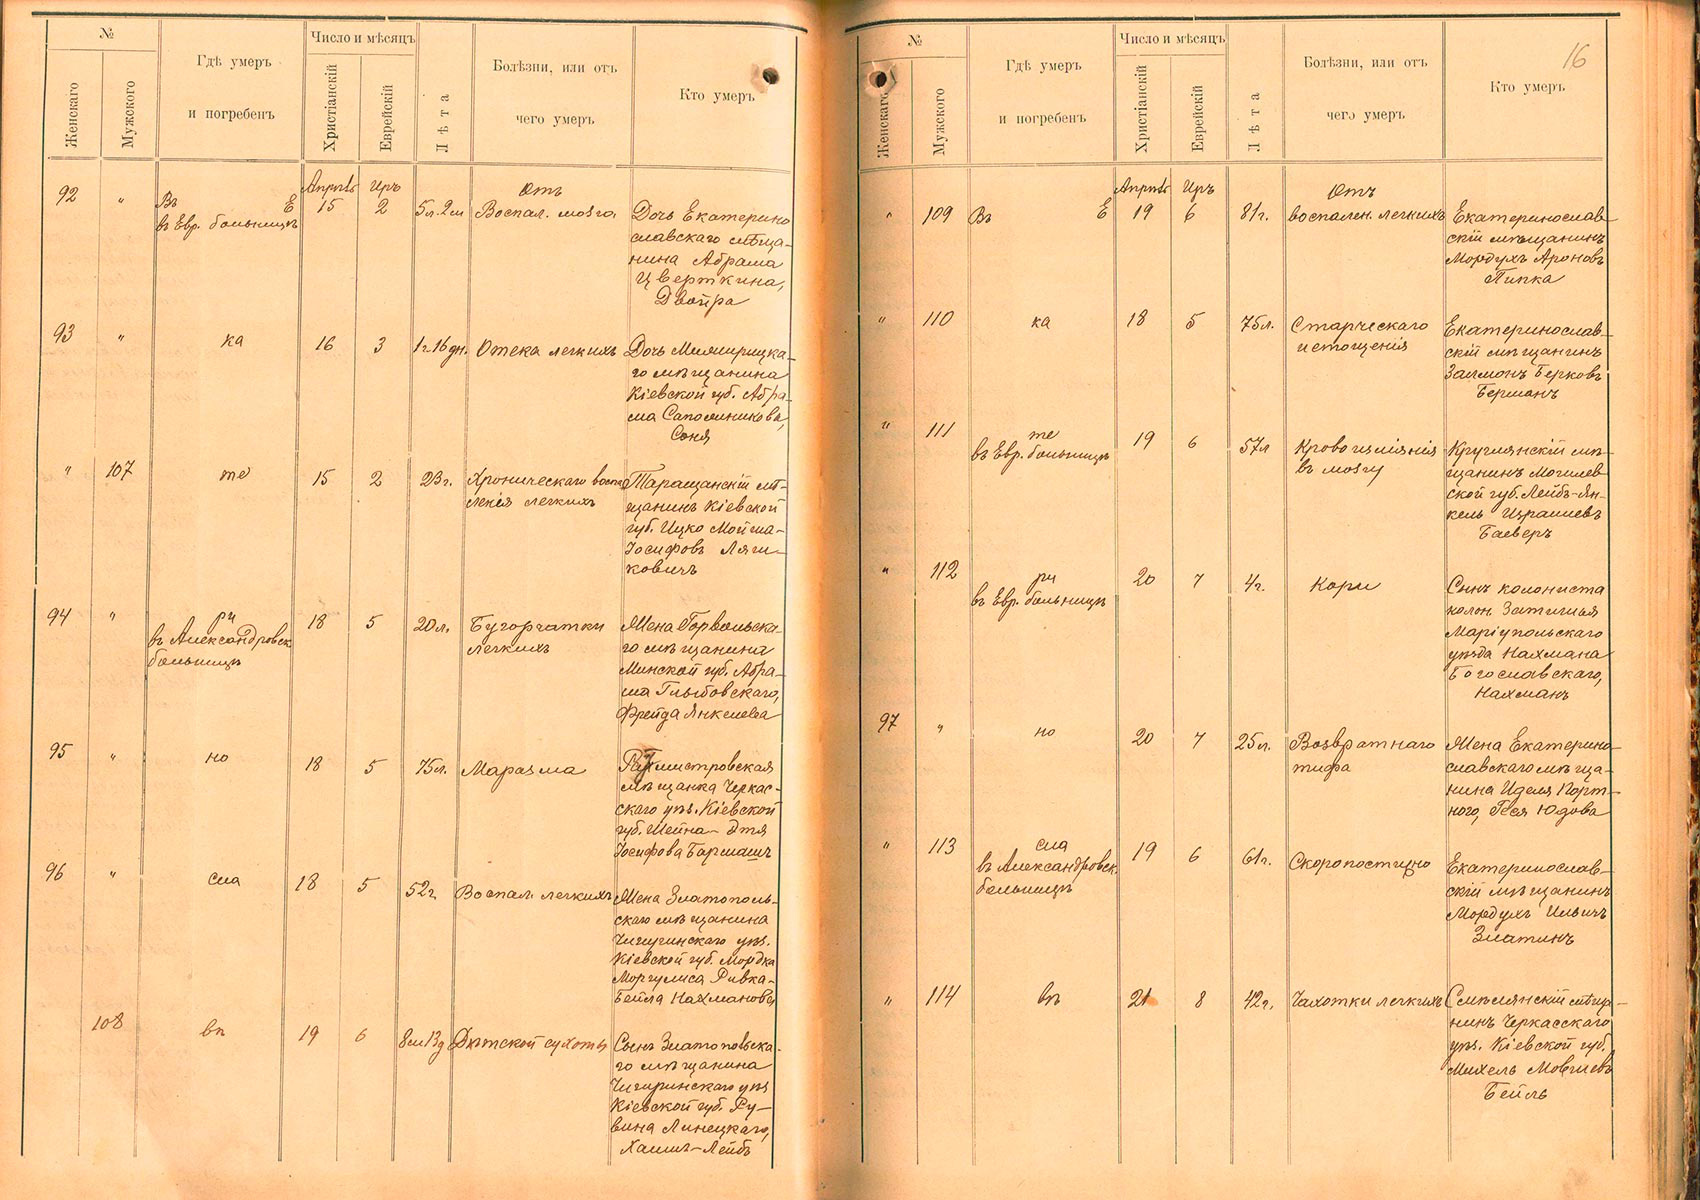 №
Число и мѣсяцъ
Женскаго
Мужского
Гдѣ умеръ
и погребенъ
Христіанскій
Еврейскій
Лѣта
Болѣзни, или отъ
чего умеръ
Кто умеръ
92
"
Въ Е
въ Евр. больницѣ
Апрѣль
15
Иръ
2
5л. 2м
Отъ
Воспал. мозга
Дочь Екатерино
славскаго мѣща-
нина Абрама
Цверткина,
Двойра
93
"
ка
16
3
1г. 16 дн.
Отека легкихъ
го мѣщанина
Кіевской губ. Абра-
ма Сапожникова,
Соня
"
107
те
15
2
23г.
Хроническаго воспа
ленія легкихъ
Таращанскій мѣ-
щанинъ Кіевской
губ. Ицко Мойша-
Іосифовъ Ляш-
ковичъ
94
"
ри
въ Александровск
больницѣ
18
5
20л.
Бугорчатки
легкихъ
Жена Горвольска-
го мѣщанина
Минской губ. Абра-
ма Глыбовскаго,
Фрейда Янкелева
95
"
но
18
5
75л.
Маразма
Ротмистровская
мѣщанка Черкас-
скаго уѣз. Кіевской
губ. Шейна-Этя
Іосифова Бармашъ
96
"
сла
18
5
52г.
Воспал. легкихъ
Жена Златополь-
скаго мѣщанина
Чигиринскаго уѣз.
Кіевской губ. Мордка
Моргулиса Ривка-
Бейла Нахманова
108
вѣ
19
6
8м 13д
Дѣтской сухоты
Сынъ Златопольска-
го мѣщанина
Чигиринскаго уѣз
Кіевской губ. Ру-
вина Линецкаго,
Хаимъ-Лейбъ
16
№
Число и мѣсяцъ
Женскаго
Мужского
Гдѣ умеръ
и погребенъ
Христіанскій
Еврейскій
Лѣта
Болѣзни, или отъ
чего умеръ
Кто умеръ
"
109
Въ Е
Апрѣль
19
Иръ
6
81г.
Отъ
воспален. легкихъ
Екатеринослав-
скій мѣщанинъ
Мордухъ Ароновъ
Пипка
"
110
ка
18
5
75л.
Старческаго
истощенія
Екатеринослав-
скій мѣщанинъ
Залмонъ Берковъ
Берманъ
"
111
те
въ Евр. больницѣ
19
6
57л
Кровоизліянія
въ мозгу
Круглянскій мѣ-
щанинъ Могилев
ской губ. Лейбъ-Ян-
кель Израилевъ
Баеверъ
"
112
ри
въ Евр. больницѣ
20
7
4г.
Кори
Сынъ колониста
колон. Затишья
Маріупольскаго
уѣзда Нахмана
Богославскаго,
Нахманъ
97
"
но
20
7
25л.
Возвратнаго
тифа
Жена Екатерино-
славскаго мѣща-
нина Иделя Порт-
ного, Геся Юдова
"
113
сла
въ Александровск.
больницѣ
19
6
61г.
Скоропостижно
Екатеринослав-
скій мѣщанинъ
Мордухъ Ильичъ
Златинъ
"
114
вѣ
21
8
42г.
Чахотки легкихъ
Смѣлянскій мѣща-
нинъ Черкасскаго
уѣз. Кіевской губ.
Михель Мовшевъ
Бейль